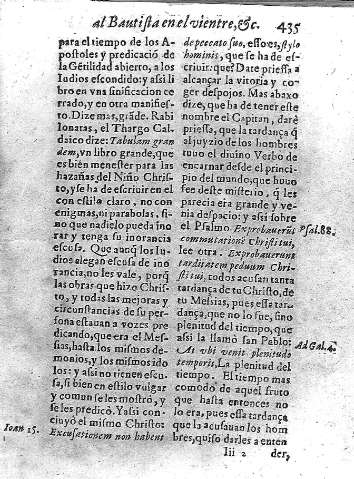 al Bautista en el vientre, &c. 435
para el tiempo de los A-
postoles y predicació de
la Gétilidad abierto, a los
Iudios escondido: y assi li
bro en vna sinificacion ce
rrado, y en otra manifies-
to. Dize mas, gráde. Rabi
Ionatas, el Thargo Cal-
daico dize: Tabulam gran
dem, vn libro grande, que
es bien menester para las
hazañas del Niño Chris-
to, y se ha de escriuir en el
con estilo claro, no con
enigmas, ni parabolas, si-
no que nadie lo pueda ino
rar y tenga su inorancia
escusa. Que aunq̃ los Iu-
dios alegan escusa de ino
rancia, no les vale, porq̃
las obras que hizo Chris-
to, y todas las mejoras y
circunstancias de su per-
sona estauan a vozes pre
dicando, que era el Mes-
sias, hasta los mismos de-
monios, y los mismos ido
los: y assi no tienen escu-
sa, si bien en estilo vulgar
y comun se les mostrò, y
se les predicò. Y assi con-
cluyò el mismo Christo:
Ioan 15.
Excusationem non habent
de peccato suo, essores, stylo
hominis, que se ha de es-
criuir: que? Date priessa a
alcançar la vitoria y co-
ger despojos. Mas abaxo
dize, que ha de tener este
nombre el Capitan, daré
priessa, que la tardança q̃
al juyzio de los hombres
tuuo el diuino Verbo de
encarnar desde el princi-
pio del mundo, que huuo
fee deste misterio, q̃ les
parecia era grande y ve-
nia despacio: y assi sobre
el Psalmo Exprobauerũt
Psal. 88.
commutationẽ Christi tui,
lee otra. Exprobauerunt
tarditatem pedum Chri-
sti tui, todos acusan tanta
tardança de tu Christo, de
tu Messias, pues essa tar-
dança, que no lo fue, sino
plenitud del tiempo, que
assi la llamò san Pablo:
Ad Gal. 4.
At vbi venit plenitudo
temporis, La plenitud del
tiempo. El tiempo mas
comodo de aquel fruto
que hasta entonces no
lo era, pues essa tardança
que la acusauan los hom
bres, quiso darles a enten
Iii 2 der,